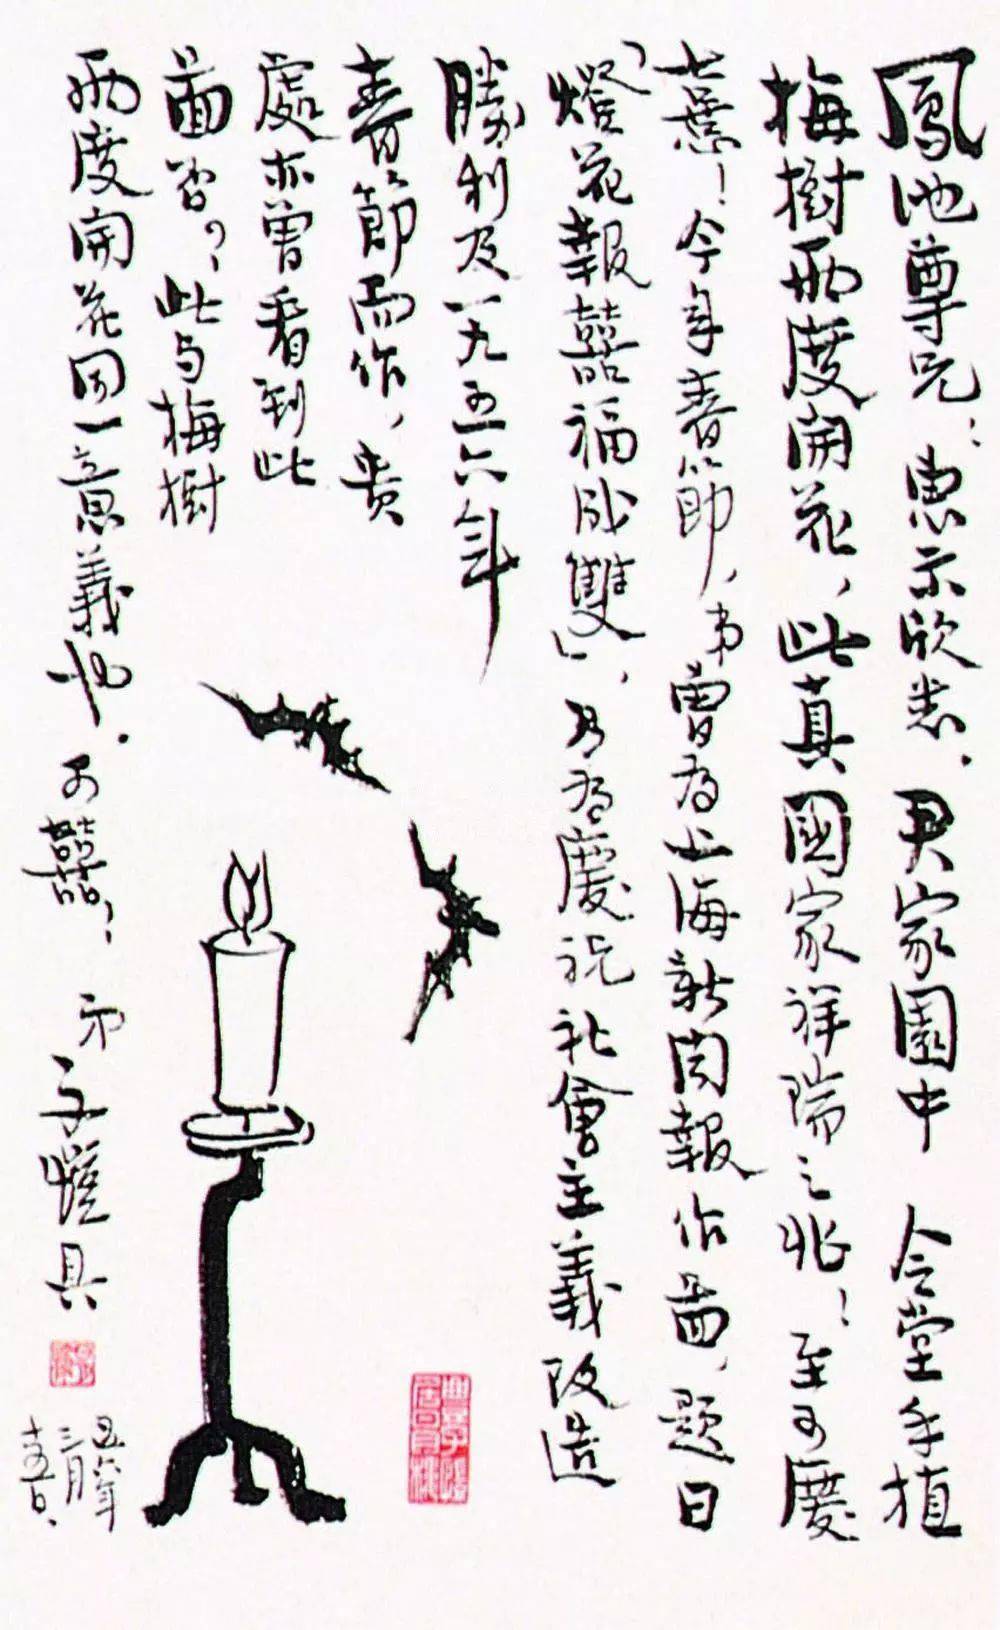 鳳池尊兄：惠示欣悉，尹家園中 令堂手植
梅樹兩度開花，此真國家祥瑞之兆！至可慶
喜！今年春節，弟曾為上海新聞報作畫，題曰
「燈花報囍福成雙」，乃為慶祝社會主義改造
勝利及一九五六年
春節而作，貴
處亦曾看到此
畫否？此与梅樹
兩度開花同一意義也。可囍，弟
子愷具
五六年
三月
十五日